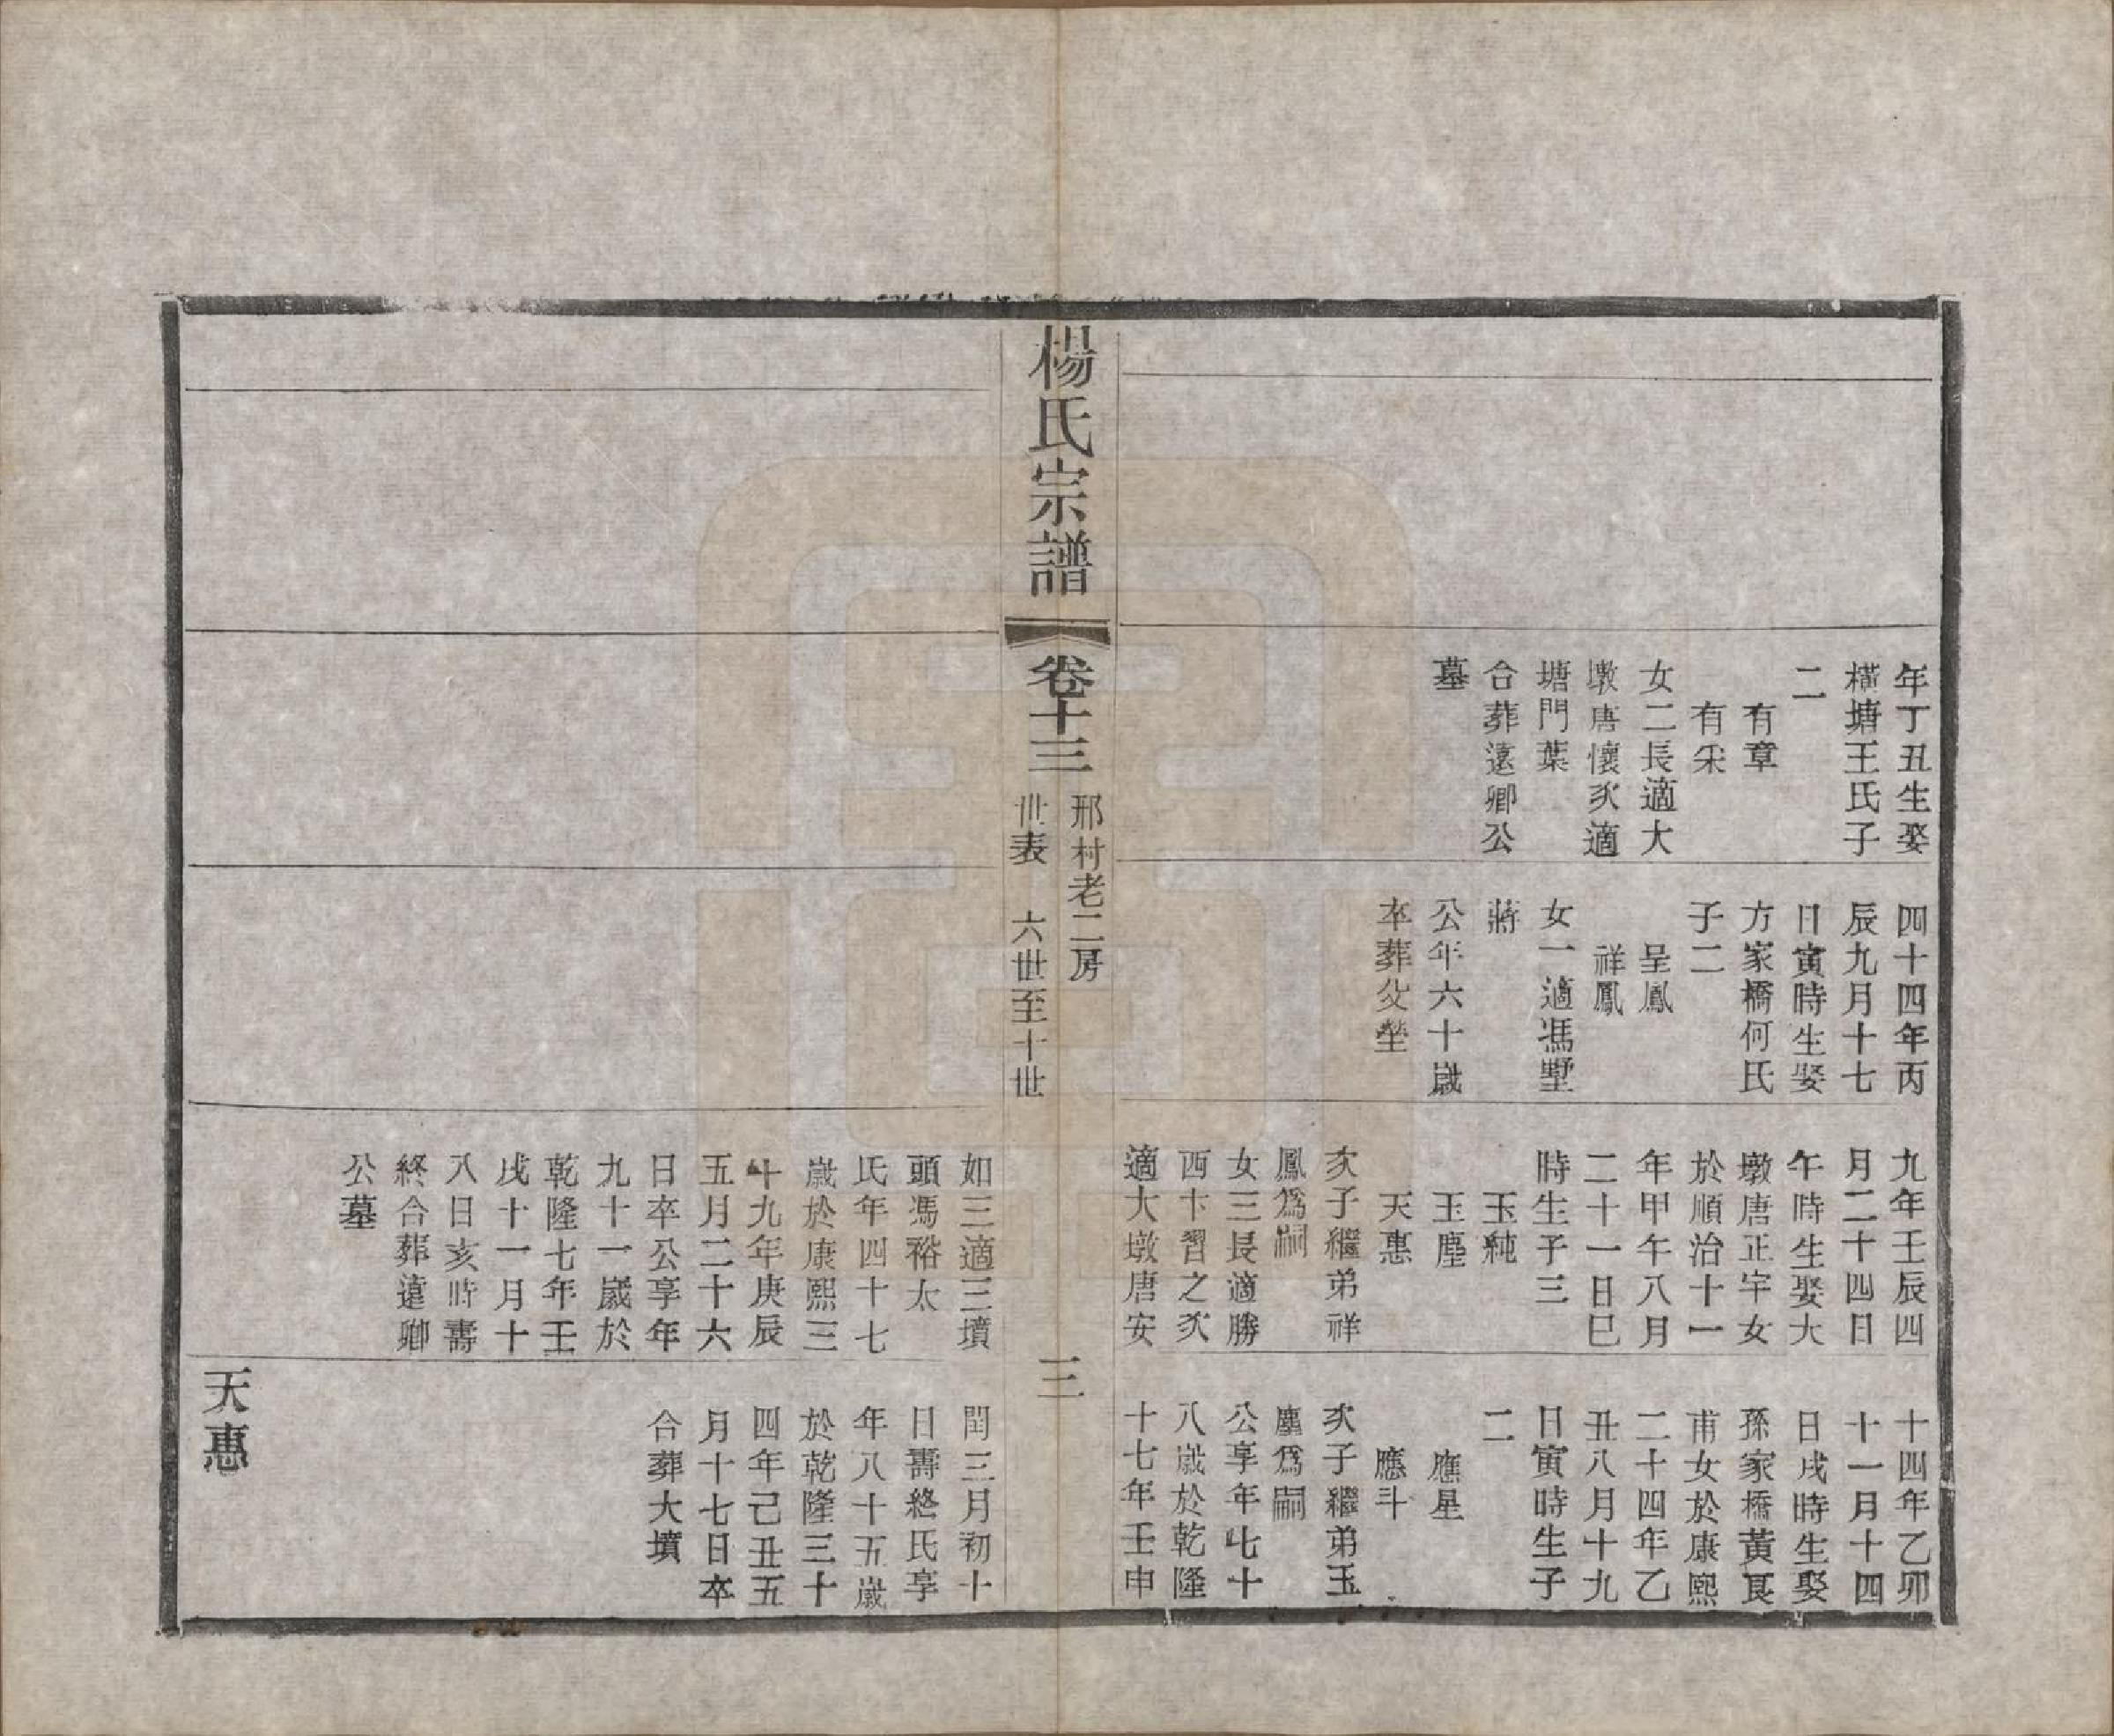 年丁丑生娶
橫塘王氏子
二
有章
有宋
女二長適大
墩唐懷次適
塘門葉
合葬遠卿公
墓
四十四年丙
辰九月十七
日寅時生娶
方家橋何氏
子二
呈鳳
祥鳳
女一適馮墅
蔣
公年六十歲
卒葬父塋
九年壬辰四
月二十四日
午時生娶大
墩唐正宇女
於順治十一
年甲午八月
二十一日巳
時生子三
玉純
玉塵
天惠
次子繼弟祥
鳳爲嗣
女三長適勝
西卞習之次
適大墩唐安
十四年乙卯
十一月十四
日戌時生娶
孫家橋黃艮
甫女於康熙
二十四年乙
丑八月十九
日寅時生子
二
應星
應斗
次子繼弟玉
塵爲嗣
公享年七十
八歲於乾隆
十七年壬申
楊氏宗譜
卷十三
邢村老二房
世表 六世至十世
三
如三適三墳
頭馮裕太
氏年四十七
歲於康熙三
十九年庚辰
五月二十六
日卒公享年
九十一歲於
乾隆七年壬
戌十一月十
八日亥時壽
終合葬遠卿
公墓
閏三月初十
日壽終氏享
年八十五歲
於乾隆三十
四年己丑五
月十七日卒
合葬大墳
天惠